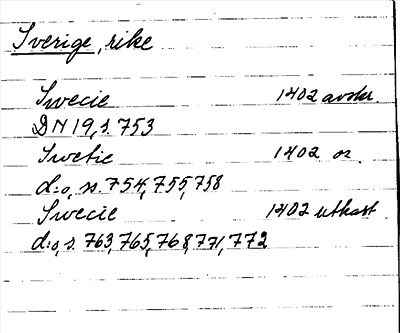 Sverige, rike
Swecie 1402 avskr.
DN 19, s. 753
Swetie 1402 or.
d:o, ss. 754, 755, 758
Swecie 1402 utkast
d:o, s. 763, 765, 768, 771, 772